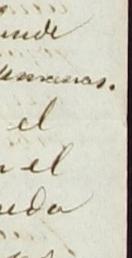 unde
semanas.
el
n el
ueda